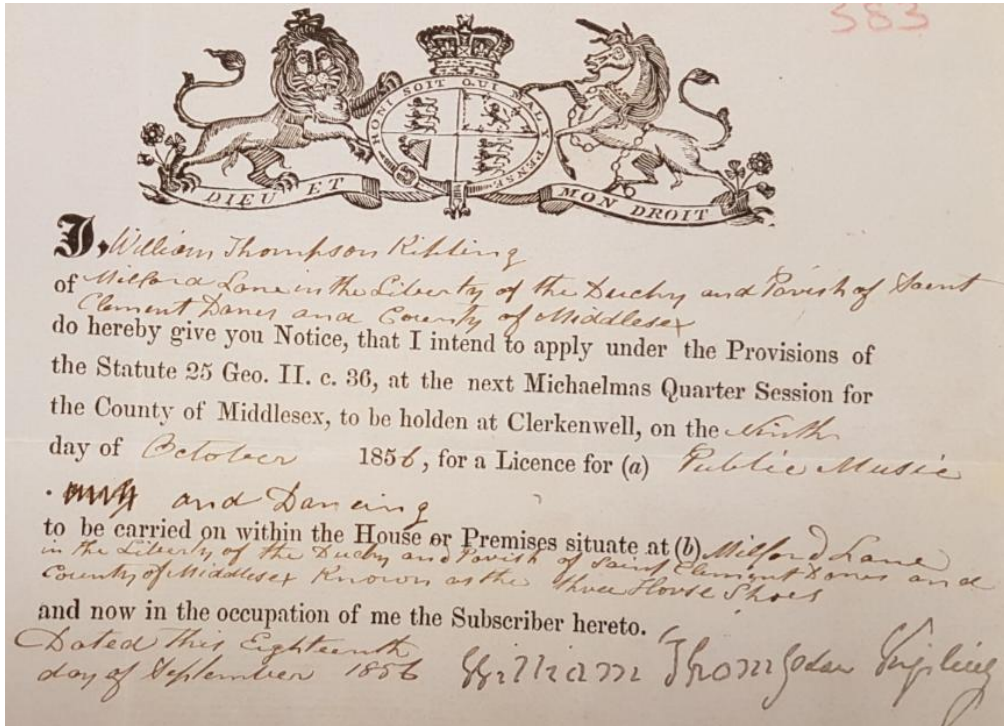 583
HONI SOIT QUI MAL Y PENSE
DIEU ET MON DROIT
I, William Thompson Kipling
of Milford Lane in the Liberty of the Duchy and Parish of Saint
Clement Danes and County of Middlesex
do hereby give you Notice, that I intend to apply under the Provisions of
the Statute 25 Geo. II. c. 36, at the next Michaelmas Quarter Session for
the County of Middlesex, to be holden at Clerkenwell, on the Ninth
day of October 1856, for a Licence for (a) Public Music
and Dancing
to be carried on within the House or Premises situate at (b) Milford Lane
in the Liberty of the Duchy and Parish of Saint Clement Danes and
County of Middlesex Known as the three Horse Shoes
and now in the occupation of me the Subscriber hereto.
Dated this Eighteenth
day of September 1856 William Thompson Kipling